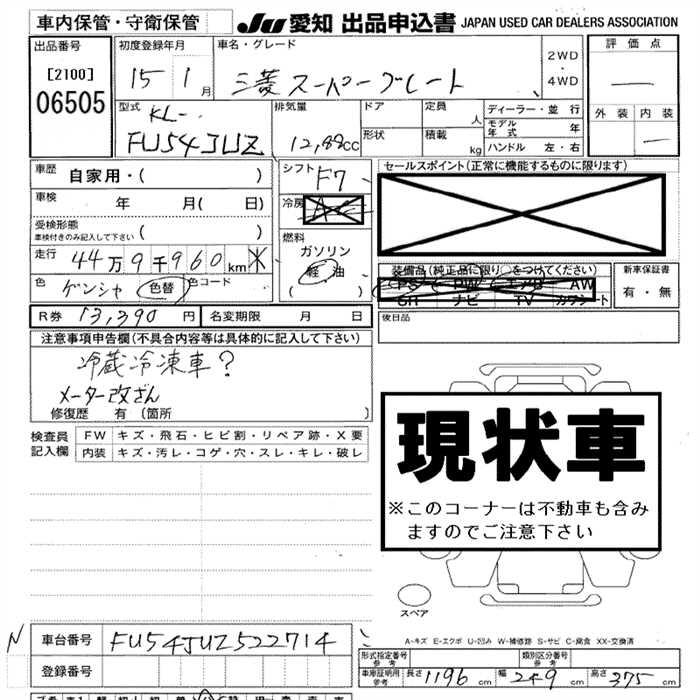 車内保管・守衛保管 JU 愛知 出品申込書 JAPAN USED CAR DEALERS ASSOCIATION
出品番号 初度登録年月 車名・グレード 2WD・4WD 評価点
[2100] 15 1月 三菱スーパーグレート
06505 外装 内装
型式 KL- 排気量 ドア 定員 人 ディーラー・並行
FU54JUZ 12,88cc 形状 積載 kg モデル年式 年
ハンドル 左・右
車歴 自家用・( ) シフト F7 セールスポイント(正常に機能するものに限ります)
車検 年 月( 日) 冷房 AC
受検形態 燃料
車検付きのみ記入して下さい ( ) ガソリン
走行 44万9千960km 軽・油 装備品(純正品に限り○をつけてください) 新車保証書
色 ゲンシャ 色替 色コード ( ) PS PW エアB AW 有・無
SR ナビ TV カワシート
R券 13,390円 名変期限 月 日 後日品
注意事項申告欄(不具合内容等は具体的に記入して下さい)
冷蔵冷凍車?
メーター改ざん
修復歴 有 〔箇所 〕
検査員記入欄 FW キズ・飛石・ヒビ割・リペア跡・X要
内装 キズ・汚レ・コゲ・穴・スレ・キレ・破レ
現状車
※このコーナーは不動車も含み
ますのでご注意下さい
スペア
A-キズ E-エクボ U-凹み W-補修跡 S-サビ C-腐食 XX-交換済
N 車台番号 FU54JUZ522714
登録番号
形式指定番号 参考 類別区分番号 参考
車庫証明用 参考 長さ 1196 cm 幅 249 cm 高さ 375 cm